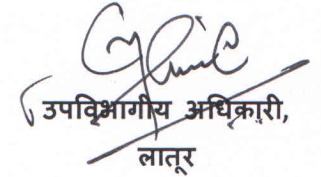 उपविभागीय अधिकारी,
लातूर